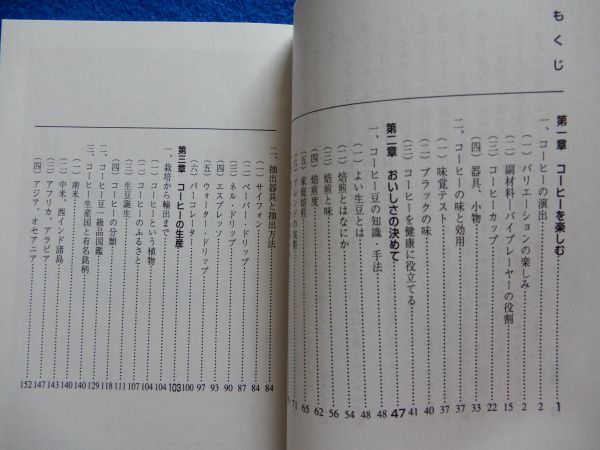 もくじ
第一章 コーヒーを楽しむ……1
一、コーヒーの演出……2
(一) バリエーションの楽しみ……2
(二) 副材料・バイプレーヤーの役割……15
(三) コーヒーカップ……22
(四) 器具、小物……33
二、コーヒーの味と効用……37
(一) 味覚テスト……37
(二) ブラックの味……40
(三) コーヒーを健康に役立てる……41
第二章 おいしさの決めて……47
一、コーヒー豆の知識・手法……48
(一) よい生豆とは……48
(二) 焙煎とはなにか……54
(三) 焙煎と味……56
(四) 焙煎度……62
(五) 家庭焙煎……65
ブレンドの実際……71
二、抽出器具と抽出方法……84
(一) サイフォン……84
(二) ペーパー・ドリップ……87
(三) ネル・ドリップ……90
(四) エスプレッソ……93
(五) ウォーター・ドリップ……97
(六) パーコレーター……100
第三章 コーヒーの生産……103
一、栽培から輸出まで……104
(一) コーヒーという植物……104
(二) コーヒーのふるさと……107
(三) 生豆誕生……111
(四) コーヒーの分類……118
二、コーヒー豆一級品図鑑……129
三、コーヒー生産国と有名銘柄……140
(一) 南米……140
(二) 中米、西インド諸島……143
(三) アフリカ、アラビア……147
(四) アジア、オセアニア……152